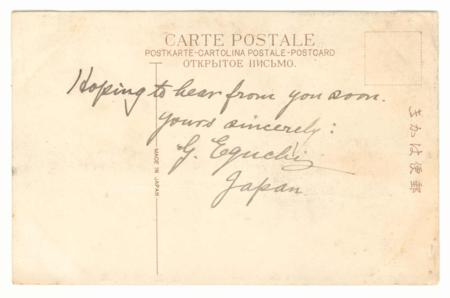 CARTE POSTALE
POSTKARTE-CARTOLINA POSTALE-POSTCARD
ОТКРЫТОЕ ПИСЬМО.
Hoping to hear from you soon.
Yours sincerely:
G. Eguchi
Japan
MADE IN JAPAN
きかは便郵